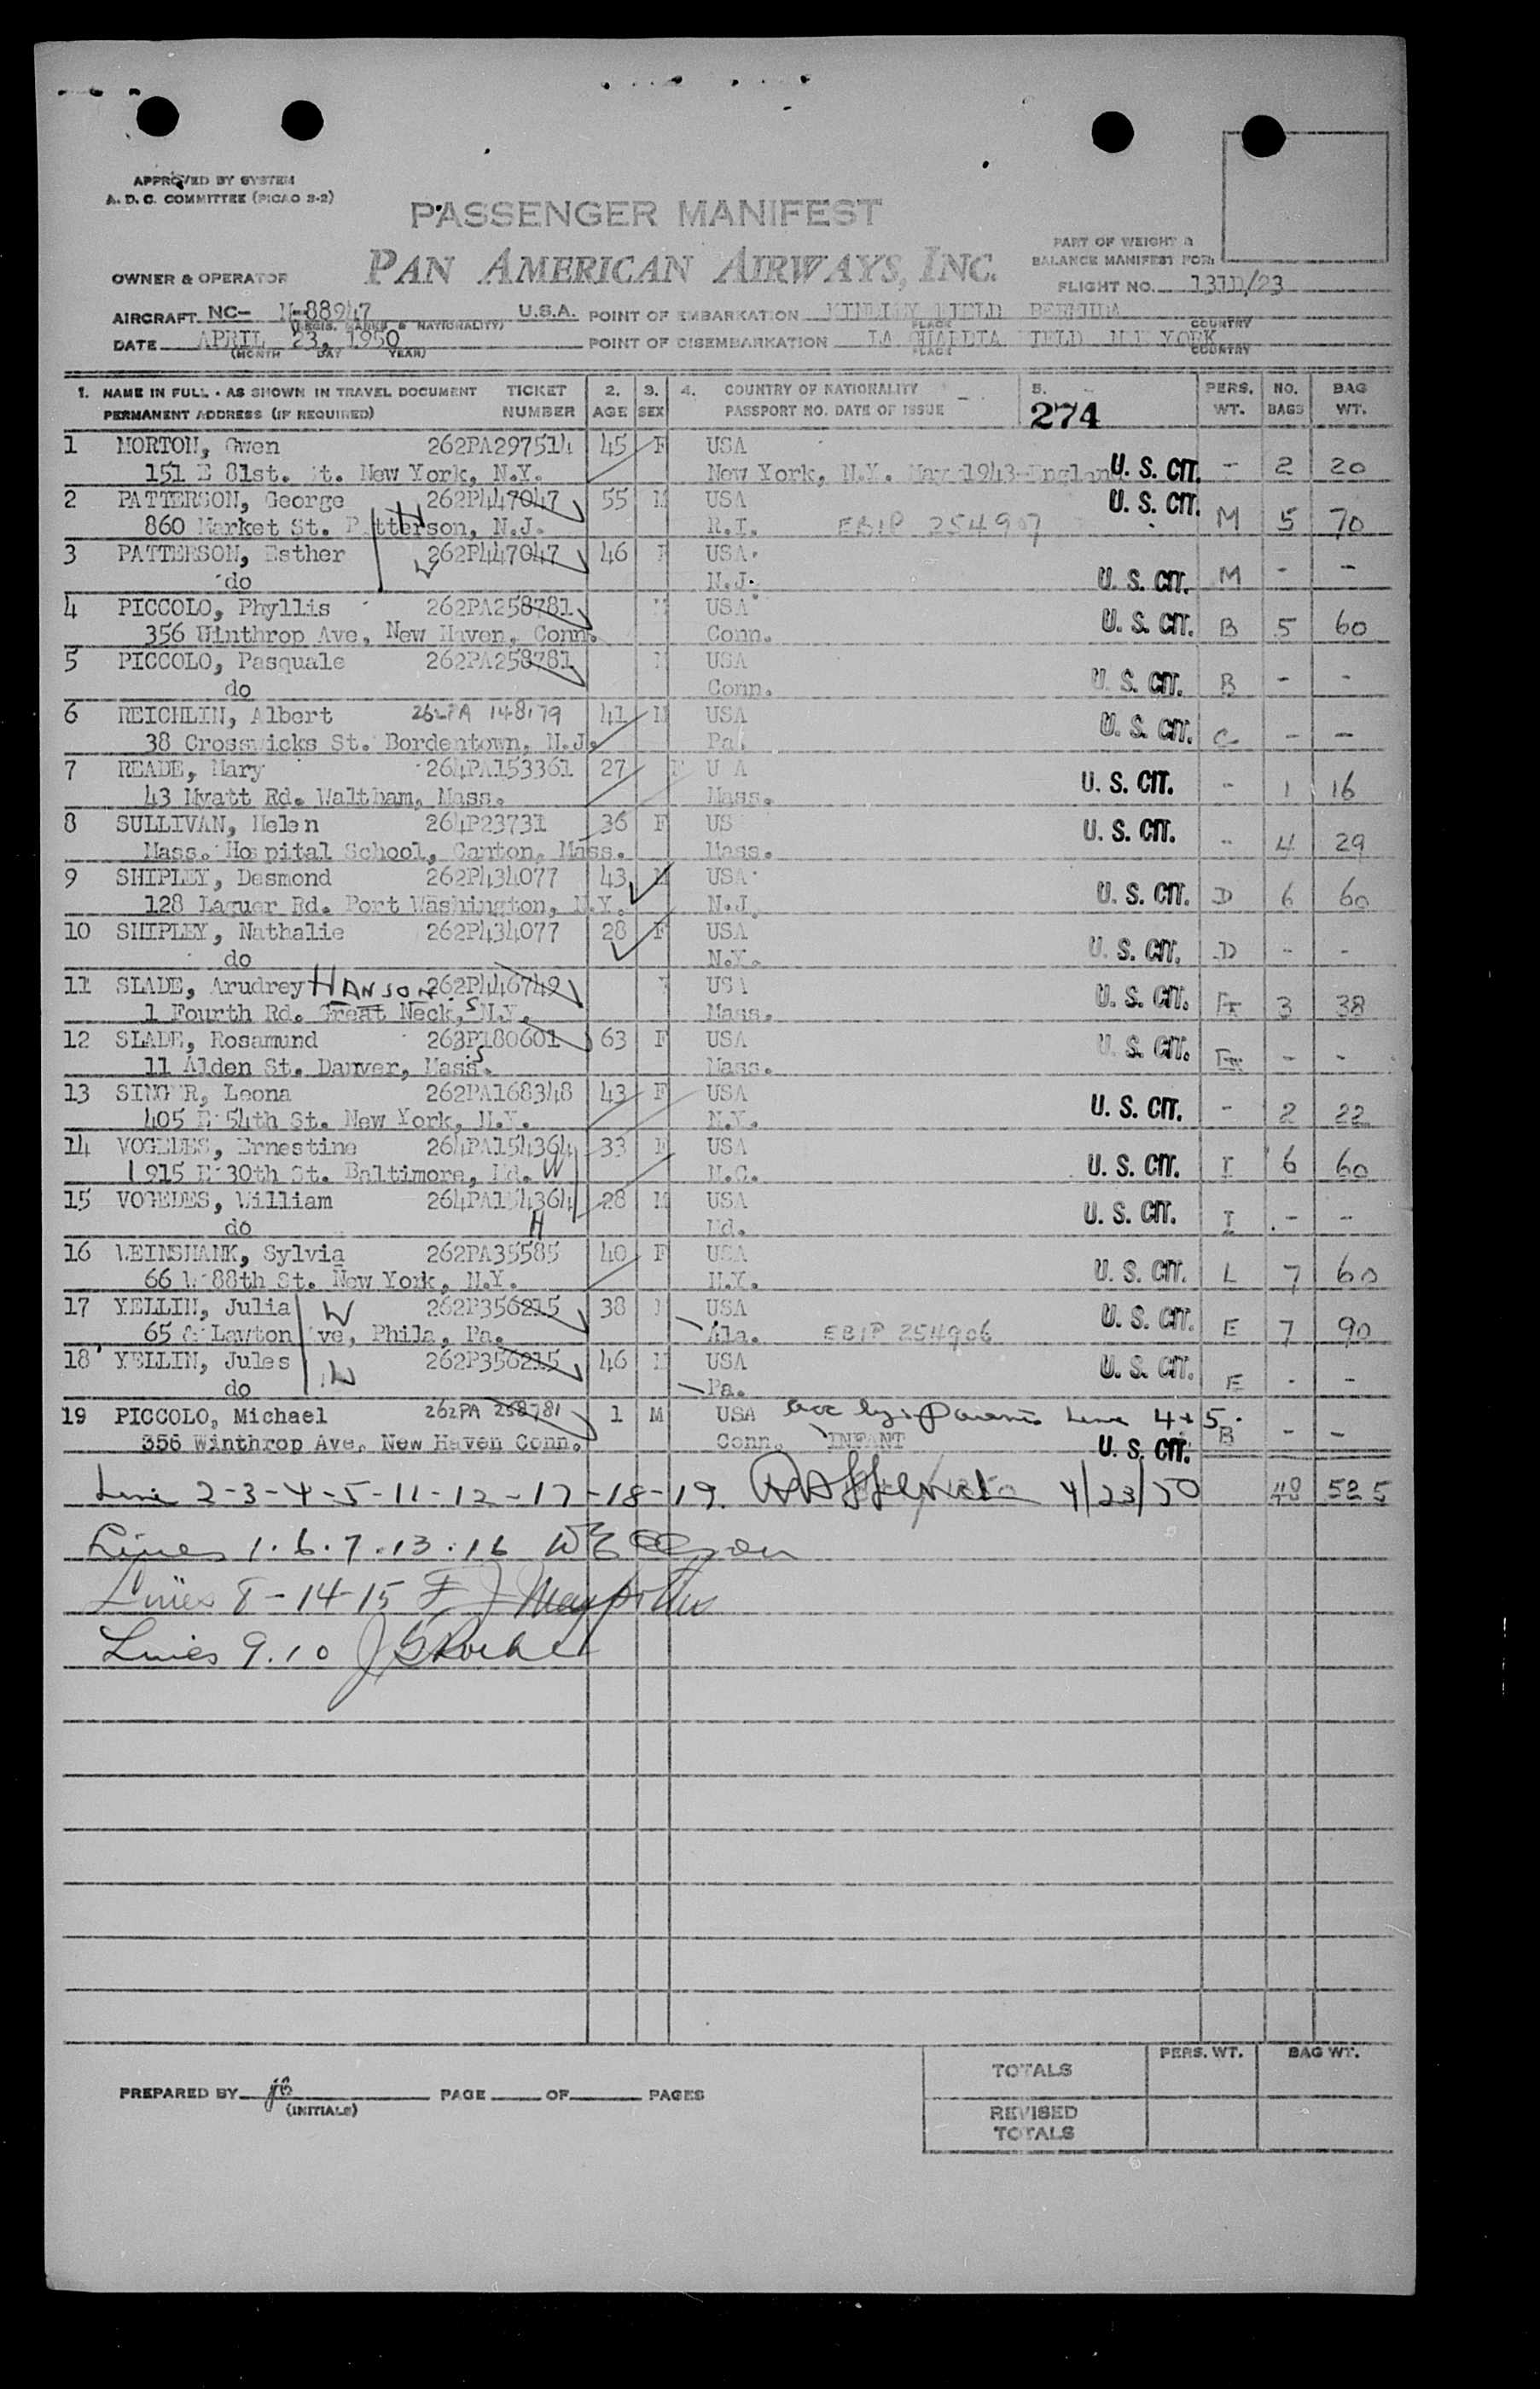 APPROVED BY SYSTEM
A. D. C. COMMITTEE (PICAO 2-2)
PASSENGER MANIFEST
PART OF WEIGHT &
BALANCE MANIFEST FOR:
OWNER & OPERATOR PAN AMERICAN AIRWAYS, INC.
FLIGHT NO. 131D/23
AIRCRAFT NC- N-88947 U.S.A. POINT OF EMBARKATION KINDLEY FIELD BERMUDA
(REGIS. MARKS & NATIONALITY) PLACE COUNTRY
DATE APRIL 23, 1950 POINT OF DISEMBARKATION LA GUARDIA FIELD N.Y. YORK
(MONTH DAY YEAR) PLACE COUNTRY
1. NAME IN FULL - AS SHOWN IN TRAVEL DOCUMENT TICKET 2. 3. 4. COUNTRY OF NATIONALITY 5. PERS. NO. BAG
PERMANENT ADDRESS (IF REQUIRED) NUMBER AGE SEX PASSPORT NO. DATE OF ISSUE 274 WT. BAGS WT.
1 MORTON, Gwen 262PA297514 45 F USA
151 E 81st. St. New York, N.Y. New York, N.Y. May 1943-England U. S. CIT. - 2 20
2 PATTERSON, George 262P447047 55 M USA U. S. CIT.
860 Market St. Patterson, N.J. H R.I. EBIP 254907 M 5 70
3 PATTERSON, Esther 262P447047 46 F USA
do W N.J. U. S. CIT. M - -
4 PICCOLO, Phyllis 262PA258781 USA
356 Winthrop Ave, New Haven, Conn. Conn. U. S. CIT. B 5 60
5 PICCOLO, Pasquale 262PA258781 M USA
do Conn. U. S. CIT. B - -
6 REICHLIN, Albert 262PA 148179 41 M USA
38 Crosswicks St. Bordentown, N.J. Pa. U. S. CIT. C - -
7 READE, Mary 264PA153361 27 F U A
43 Myatt Rd. Waltham, Mass. Mass. U. S. CIT. - 1 16
8 SULLIVAN, Helen 264P23731 36 F US
Mass. Hospital School, Canton, Mass. Mass. U. S. CIT. - 4 29
9 SHIPLEY, Desmond 262P434077 43 M USA
128 Laguer Rd. Port Washington, N.Y. N.J. U. S. CIT. D 6 60
10 SHIPLEY, Nathalie 262P434077 28 F USA
do N.Y. U. S. CIT. D - -
11 SLADE, Arudrey HANSON 262P446749 USA
1 Fourth Rd. Great Neck, N.Y. Mass. U. S. CIT. 3 38
12 SLADE, Rosamund 263P180601 63 F USA
11 Alden St. Danver, Mass. Mass. U. S. CIT. - -
13 SINGER, Leona 262PA168348 43 F USA
405 E 54th St. New York, N.Y. N.Y. U. S. CIT. - 2 22
14 VOGEDES, Ernestine 264PA154364 33 F USA
1915 E 30th St. Baltimore, Md. W N.C. U. S. CIT. I 6 60
15 VOGEDES, William 264PA154364 28 M USA
do H Md. U. S. CIT. I - -
16 WEINSHANK, Sylvia 262PA35585 40 F USA
66 W 88th St. New York, N.Y. N.Y. U. S. CIT. L 7 60
17 YELLIN, Julia W 262P356215 38 F USA
65 Lawton Ave, Phila, Pa. Ala. EBIP 254906 U. S. CIT. E 7 90
18 YELLIN, Jules W 262P356215 46 M USA
do Pa. U. S. CIT. E - -
19 PICCOLO, Michael 262PA 258781 1 M USA acc by parents Line 4+5.
356 Winthrop Ave, New Haven Conn. Conn. INFANT U. S. CIT. B - -
Line 2-3-4-5-11-12-17-18-19. 4/23/50 48 525
Lines 1.6.7.13.16
Lines 8-14-15
Lines 9.10
TOTALS PERS. WT. BAG WT.
PREPARED BY (INITIALS) PAGE OF PAGES
REVISED
TOTALS